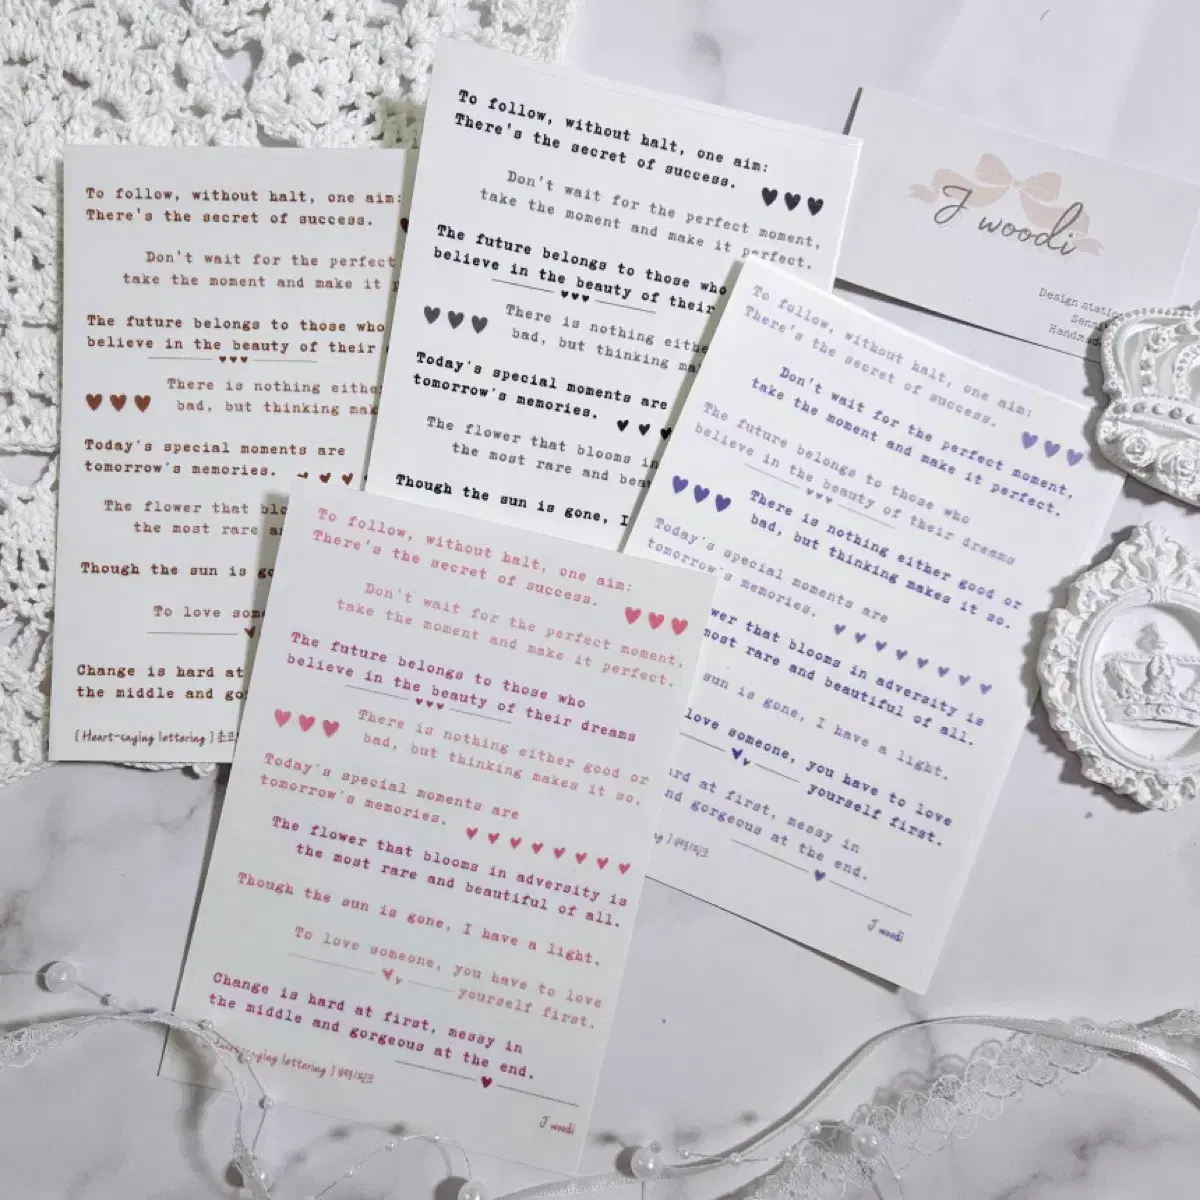 To follow, without halt, one aim:
There's the secret of success.
Don't wait for the perfect
take the moment and make it
The future belongs to those who
believe in the beauty of their
There is nothing
bad, but thinking
Today's special moments are
tomorrow's memories.
The flower that
the most rare
Though the sun is
To love
Change is hard at
the middle and
[ Heart-saying lettering ]
To follow, without halt, one aim:
There's the secret of success.
Don't wait for the perfect moment,
take the moment and make it perfect.
The future belongs to those who
believe in the beauty of their
There is nothing
bad, but thinking
Today's special moments are
tomorrow's memories.
The flower that blooms in
the most rare and
Though the sun is gone, I
J woodi
Design
Handmade
To follow, without halt, one aim:
There's the secret of success.
Don't wait for the perfect moment,
take the moment and make it perfect.
The future belongs to those who
believe in the beauty of their dreams
There is nothing either good or
bad, but thinking makes it so.
Today's special moments are
tomorrow's memories.
that blooms in adversity is
most rare and beautiful of all.
sun is gone, I have a light.
love someone, you have to love
yourself first.
at first, messy in
gorgeous at the end.
J woodi
To follow, without halt, one aim:
There's the secret of success.
Don't wait for the perfect moment,
take the moment and make it perfect.
The future belongs to those who
believe in the beauty of their dreams
There is nothing either good or
bad, but thinking makes it so.
Today's special moments are
tomorrow's memories.
The flower that blooms in adversity is
the most rare and beautiful of all.
Though the sun is gone, I have a light.
To love someone, you have to love
yourself first.
Change is hard at first, messy in
the middle and gorgeous at the end.
lettering ]
J woodi